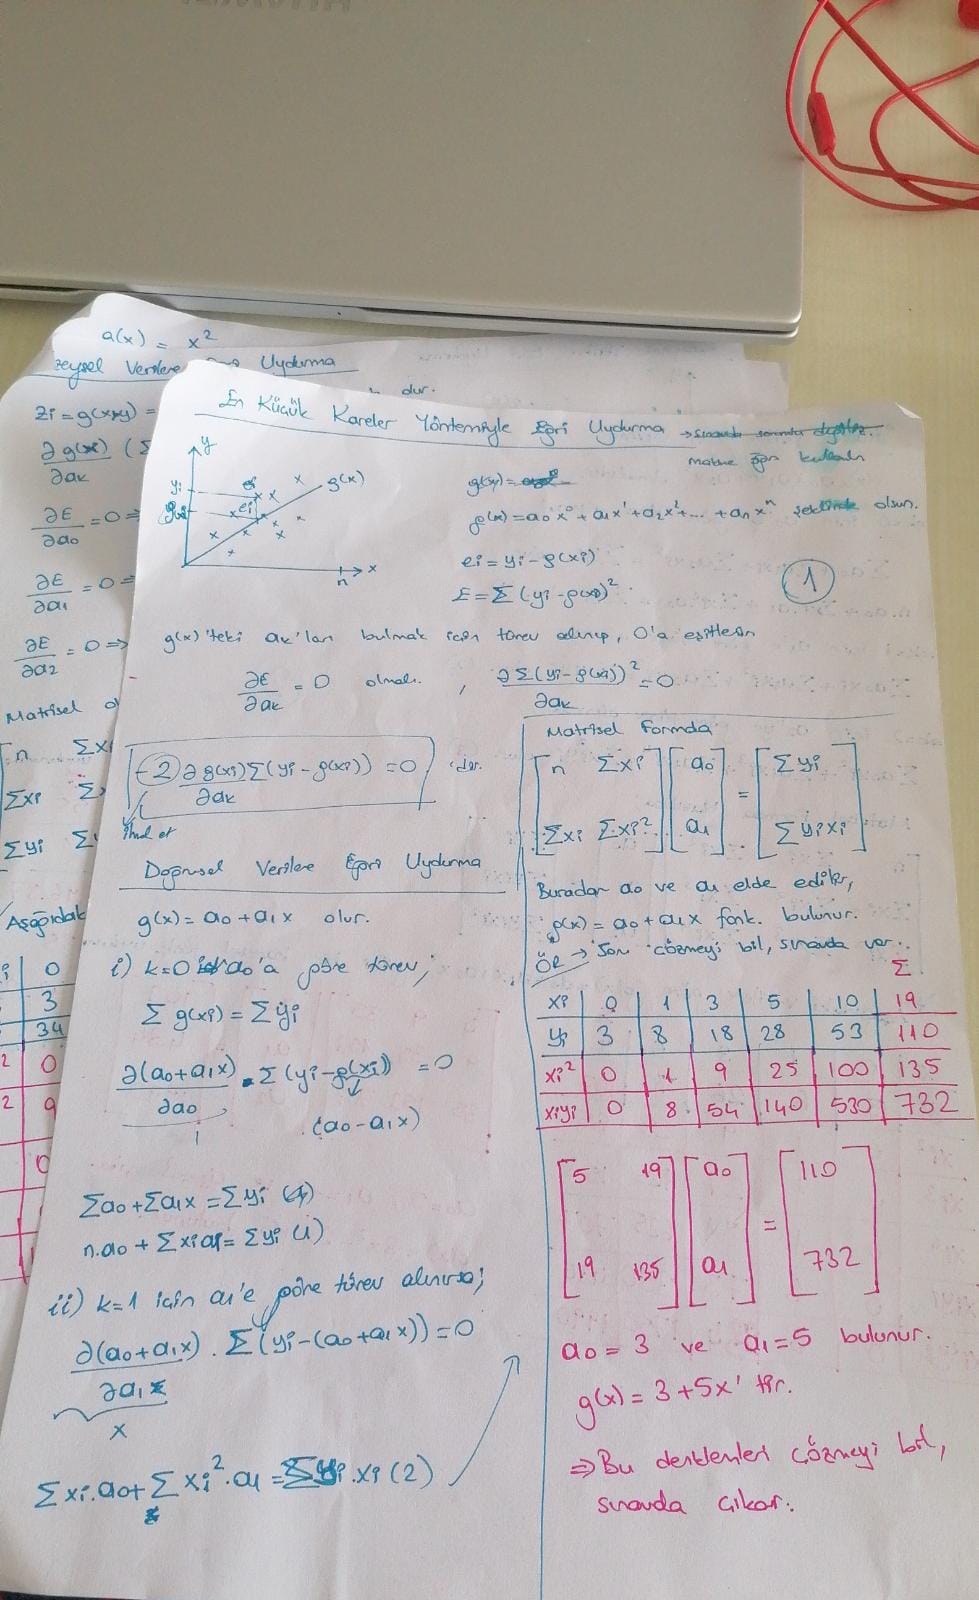 a(x) = x²
zeysel Verilere Uydurma
dur.
zi = g(x,y) =
∂g(xi) (Σ
∂ak
∂E = 0 ⇒
∂a0
∂E = 0 ⇒
∂a1
∂E = 0 ⇒
∂a2
Matrisel
n Σxi
Σxi Σ
Σyi Σ
Aşağıdak
i 0
3
34
2 0
2 9
En Küçük Kareler Yöntemiyle Eğri Uydurma →
y
yi
ei
ei
g(x)
x
n
g(x) = a0x⁰ + a1x¹ + a2x² + ... + anxⁿ şeklinde olsun.
ei = yi - g(xi)
E = Σ(yi - g(xi))²
1
g(x)'teki ak'ları bulmak için türev alınıp, 0'a eşitlesin
∂E = 0 olmalı. , ∂Σ(yi - g(xi))² = 0
∂ak ∂ak
-2 ∂g(xi) Σ(yi - g(xi)) = 0 'dır.
∂ak
ihmal et
Doğrusal Verilere Eğri Uydurma
g(x) = a0 + a1x olur.
i) k=0 a0'a göre türev;
Σ g(xi) = Σyi
∂(a0 + a1x) . Σ(yi - g(xi)) = 0
∂a0
1 (a0 - a1x)
Σa0 + Σa1x = Σyi
n.a0 + Σxi a1 = Σyi (1)
ii) k=1 için a1'e göre türev alınırsa;
∂(a0 + a1x) . Σ(yi - (a0 + a1x)) = 0
∂a1
x
Σxi.a0 + Σxi².a1 = Σyi.xi (2)
Matrisel Formda
[n Σxi] [a0] = [Σyi]
[Σxi Σxi²] [a1] [Σyixi]
Buradan a0 ve a1 elde edilir,
g(x) = a0 + a1x fonk. bulunur.
ÖR → Son çözmeyi bil, sınavda var.
Σ
xi 0 1 3 5 10 19
yi 3 8 18 28 53 110
xi² 0 1 9 25 100 135
xiyi 0 8 54 140 530 732
[5 19] [a0] = [110]
[19 135] [a1] [732]
a0 = 3 ve a1 = 5 bulunur.
g(x) = 3 + 5x' tir.
⇒ Bu denklemleri çözmeyi bil,
sınavda çıkar.